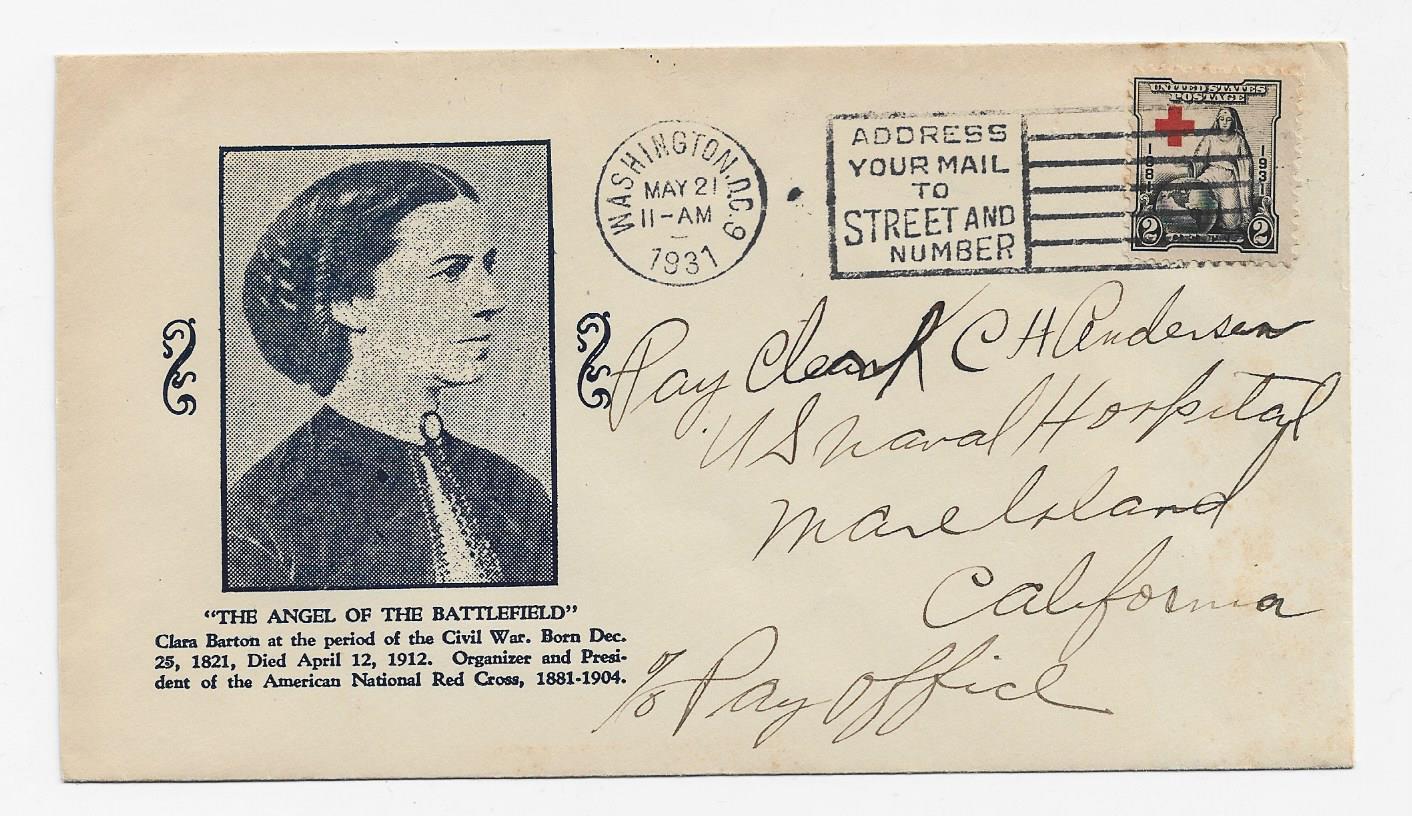 WASHINGTON, D.C. 9
MAY 21
11-AM
1931
ADDRESS
YOUR MAIL
TO
STREET AND
NUMBER
UNITED STATES
POSTAGE
1881
1931
2
2
Pay Clerk C H Andersen
US Naval Hospital
Mare Island
California
c/o Pay Office
"THE ANGEL OF THE BATTLEFIELD"
Clara Barton at the period of the Civil War. Born Dec.
25, 1821, Died April 12, 1912. Organizer and Presi-
dent of the American National Red Cross, 1881-1904.